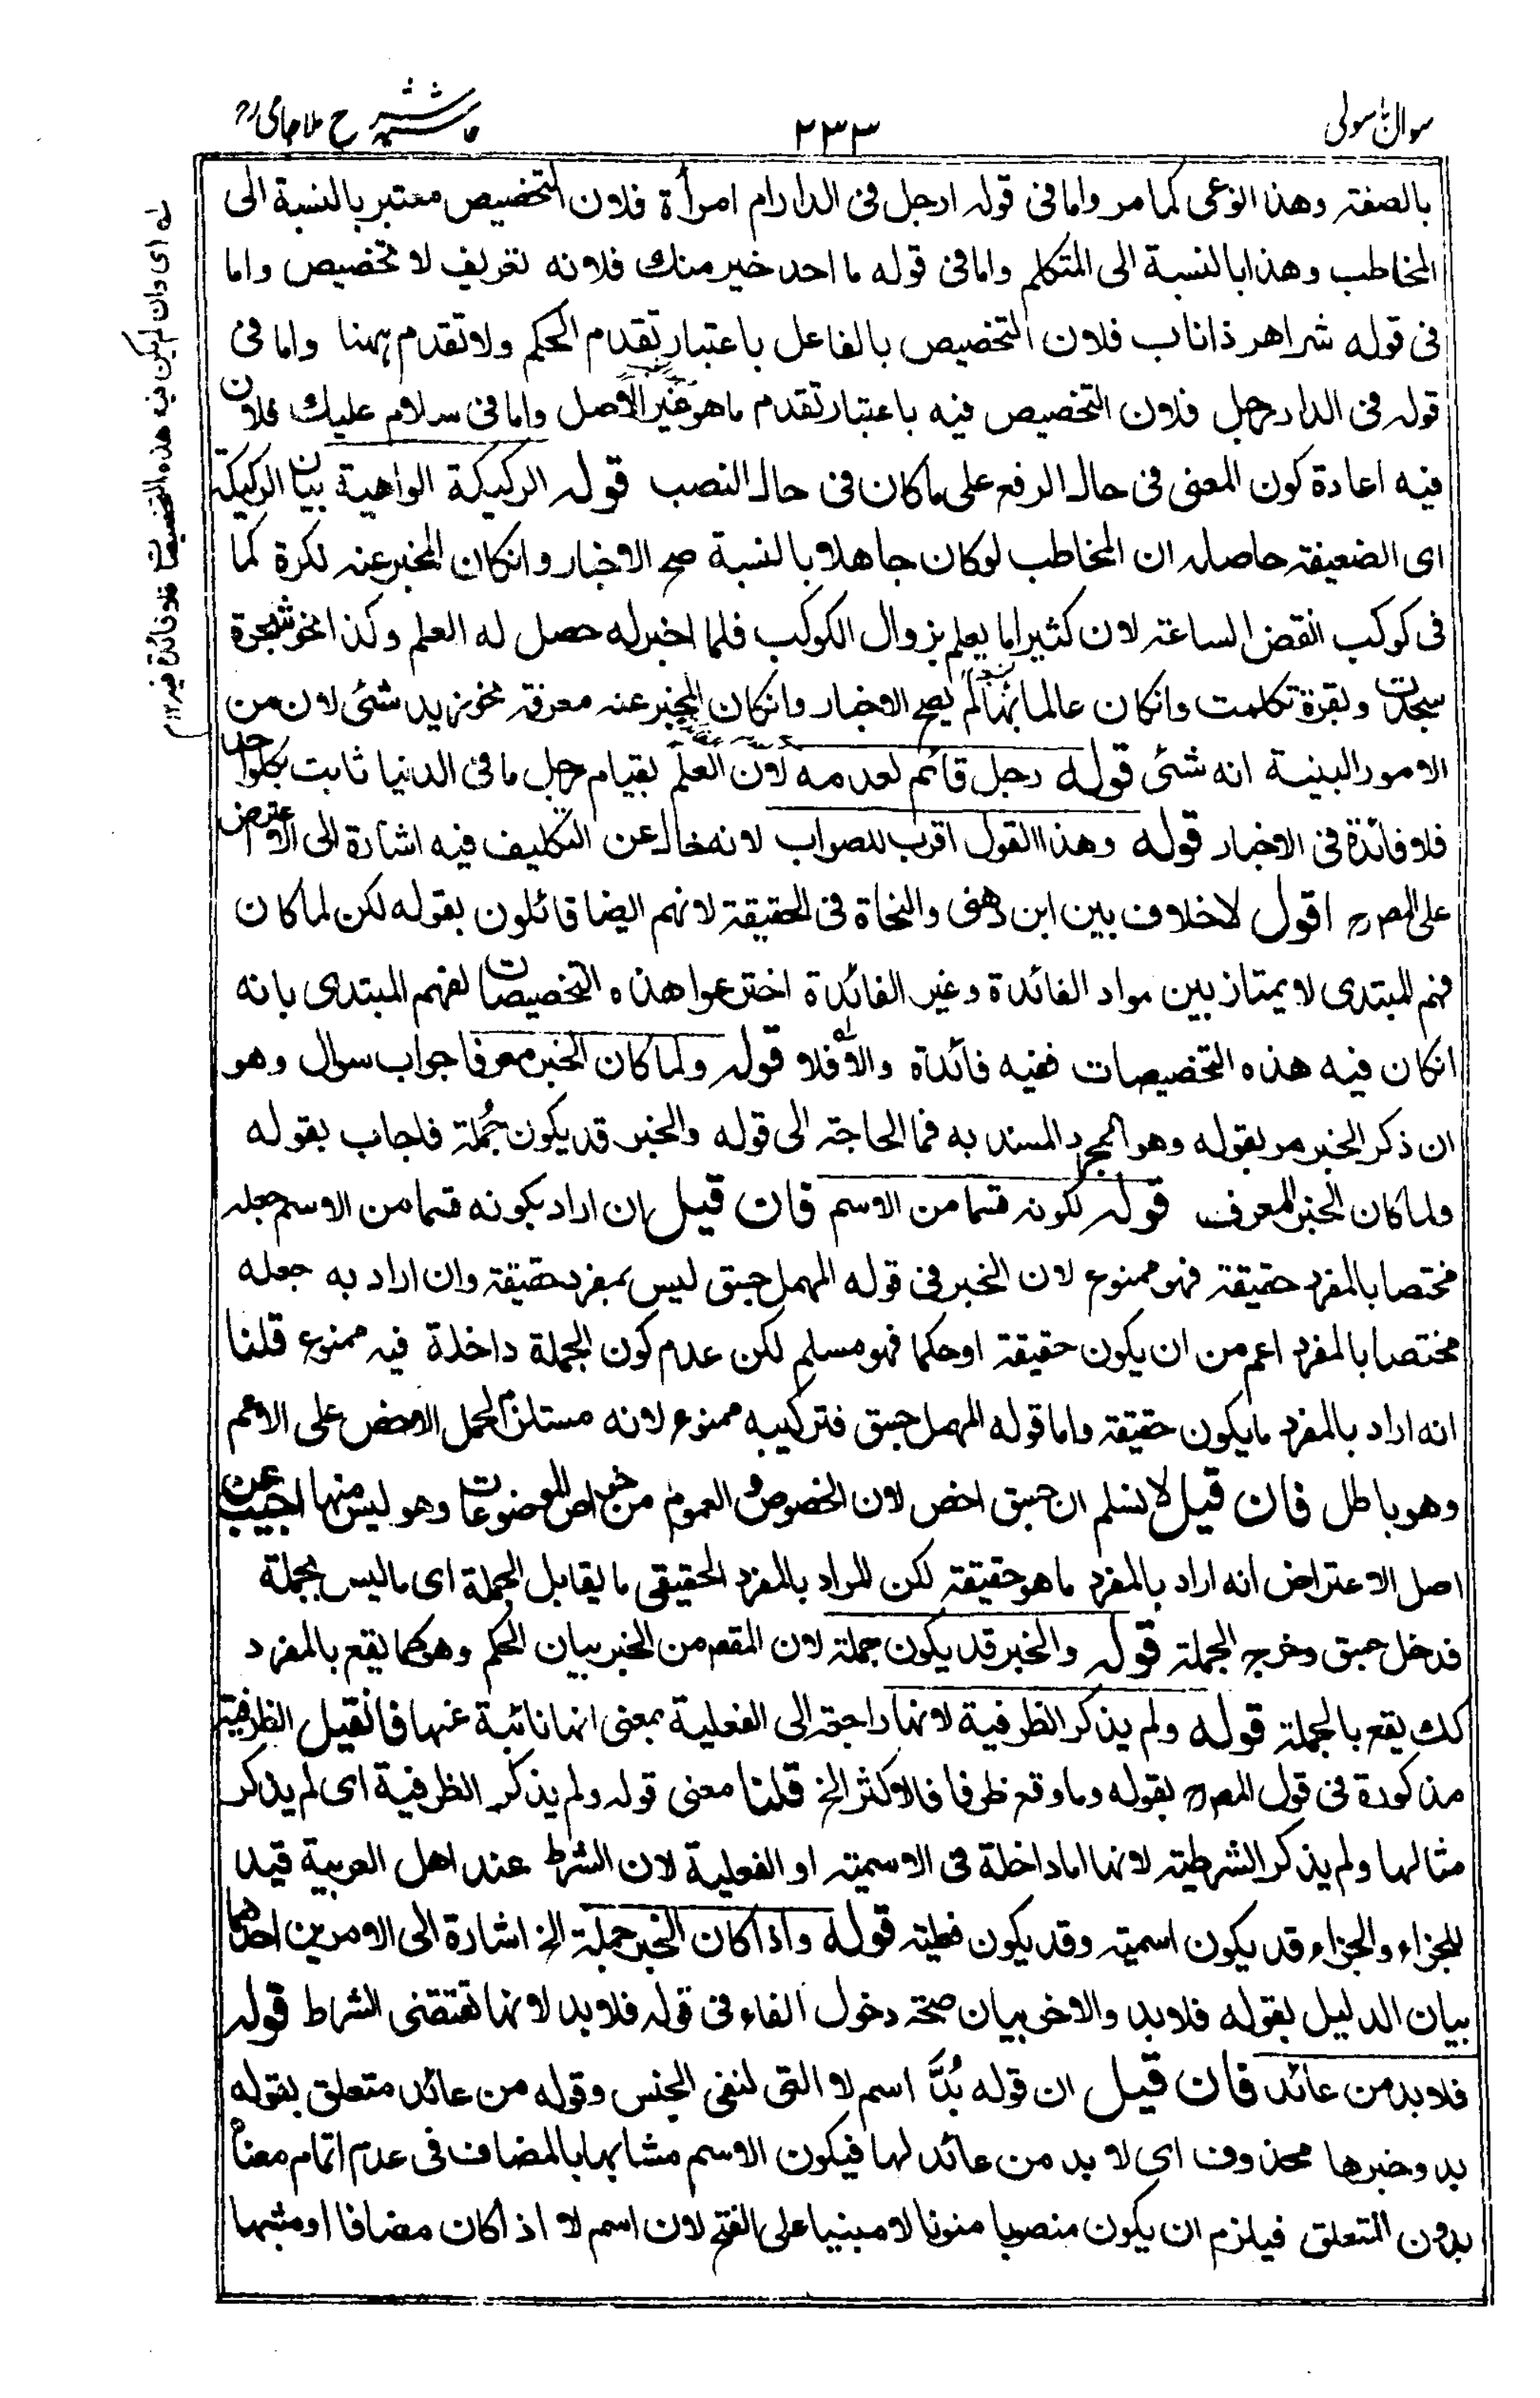 سوال باسولی
۲۳۳
حاشیہ شرح ملا جامی رح
بالصفتہ وھذا النوعی کما مر واما فی قولہ ارجل فی الدار ام امرأة فلان التخصیص معتبر بالنسبة الی
المخاطب وھذا بالنسبة الی المتکلم واما فی قولہ ما احد خیر منك فلانہ تعریف لا تخصیص واما
فی قولہ شر اھر ذا ناب فلان التخصیص بالفاعل باعتبار تقدم الحکم ولا تقدم ھہنا واما فی
قولہ فی الدار رجل فلان التخصیص فیہ باعتبار تقدم ما ھو غیر الاصل واما فی سلام علیك فلان
فیہ اعادة کون المعنی فی حال الرفع علی ما کان فی حال النصب قولہ الرکیکة الواھیة بیان الرکیکة
ای الضعیفتہ حاصلہ ان المخاطب لو کان جاھلا بالنسبة صح الاخبار وانکان المخبر عنہ نکرة کما
فی کوکب انقض الساعتہ لان کثیرا ما یعلم بزوال الکوکب فلما اخبر لہ حصل لہ العلم وکذا نحو شجرة
سجدت وبقرة تکلمت وانکان عالما بھا لم یصح الاخبار وانکان المخبر عنہ معرفتہ نحو زید شئی لان من
الامور البینیة انہ شئی قولہ رجل قائم لعدمہ لان العلم بقیام رجل ما فی الدنیا ثابت بکل واحد
فلا فائدة فی الاخبار قولہ وھذا القول اقرب للصواب لانہ خال عن التکلیف فیہ اشارة الی الاعتراض
علی المصرح اقول لاخلاف بین ابن دھنی والنحاة فی الحقیقة لانھم ایضا قائلون بقولہ لکن لما کان
فھم المبتدی لا یمتاز بین مواد الفائدة وغیر الفائدة اخترعوا ھذہ التخصیصات لفھم المبتدی بانہ
انکان فیہ ھذہ التخصیصات ففیہ فائدة والا فلا قولہ ولما کان الخبر معرفا جواب سوال وھو
ان ذکر الخبر مر بقولہ وھو المجرد المسند بہ فما الحاجتہ الی قولہ والخبر قد یکون جُملة فاجاب بقولہ
ولما کان الخبر المعرف قولہ لکونہ قسما من الاسم فان قیل ان اراد بکونہ قسما من الاسم جعلہ
مختصا بالمفرد حقیقتہ فھو ممنوع لان الخبر فی قولہ المھمل جسق لیس بمفرد حقیقة وان اراد بہ جعلہ
مختصا بالمفرد اعم من ان یکون حقیقة او حکما فھو مسلم لکن عدم کون الجملة داخلة فیہ ممنوع قلنا
انہ اراد بالمفرد ما یکون حقیقة واما قولہ المھمل جسق فترکیبہ ممنوع لانہ مستلزم لحمل الاخص علی الاعم
وھو باطل فان قیل لانسلم ان جسق اخص لان الخصوص والعموم من خواص الموضوعات وھو لیس منھا اجیب عن
اصل الاعتراض انہ اراد بالمفرد ما ھو حقیقة لکن المراد بالمفرد الحقیقی ما یقابل الجملة ای ما لیس بجملة
فدخل جسق وخرج الجملة قولہ والخبر قد یکون جملة لان المقصم من الخبر بیان الحکم وھو کما یقع بالمفرد
کك یقع بالجملة قولہ ولم یذکر الظرفیة لانھا راجعة الی الفعلیة بمعنی انھا نائبة عنھا فانقیل الظرفیة
مذکورة فی قول المصرح بقولہ وما وقع ظرفا فالاکثر الخ قلنا معنی قولہ ولم یذکر الظرفیة ای لم یذکر
مثالھا ولم یذکر الشرطیتہ لانھا اما داخلة فی الاسمیتہ او الفعلیة لان الشرط عند اھل العربیة قید
للجزاء والجزاء قد یکون اسمیتہ وقد یکون فعلیتہ قولہ واذا کان الخبر جملة الخ اشارة الی الامرین احدھما
بیان الدلیل بقولہ فلابد والاخر بیان صحة دخول الفاء فی قولہ فلابد لانھا تقتضی الشرط قولہ
فلابد من عائد فان قیل ان قولہ بُدَّ اسم لا التی لنفی الجنس وقولہ من عائد متعلق بقولہ
بد وخبرھا محذوف ای لا بد من عائد لھا فیکون الاسم مشابھا بالمضاف فی عدم اتمام معناہ
بدون المتعلق فیلزم ان یکون منصوبا منونا لا مبنیا علی الفتح لان اسم لا اذا کان مضافا او مشبھا
لہ ای وان لم یکن فیہ ھذہ التخصیصات فلا فائدة فیہ ۱۲ م